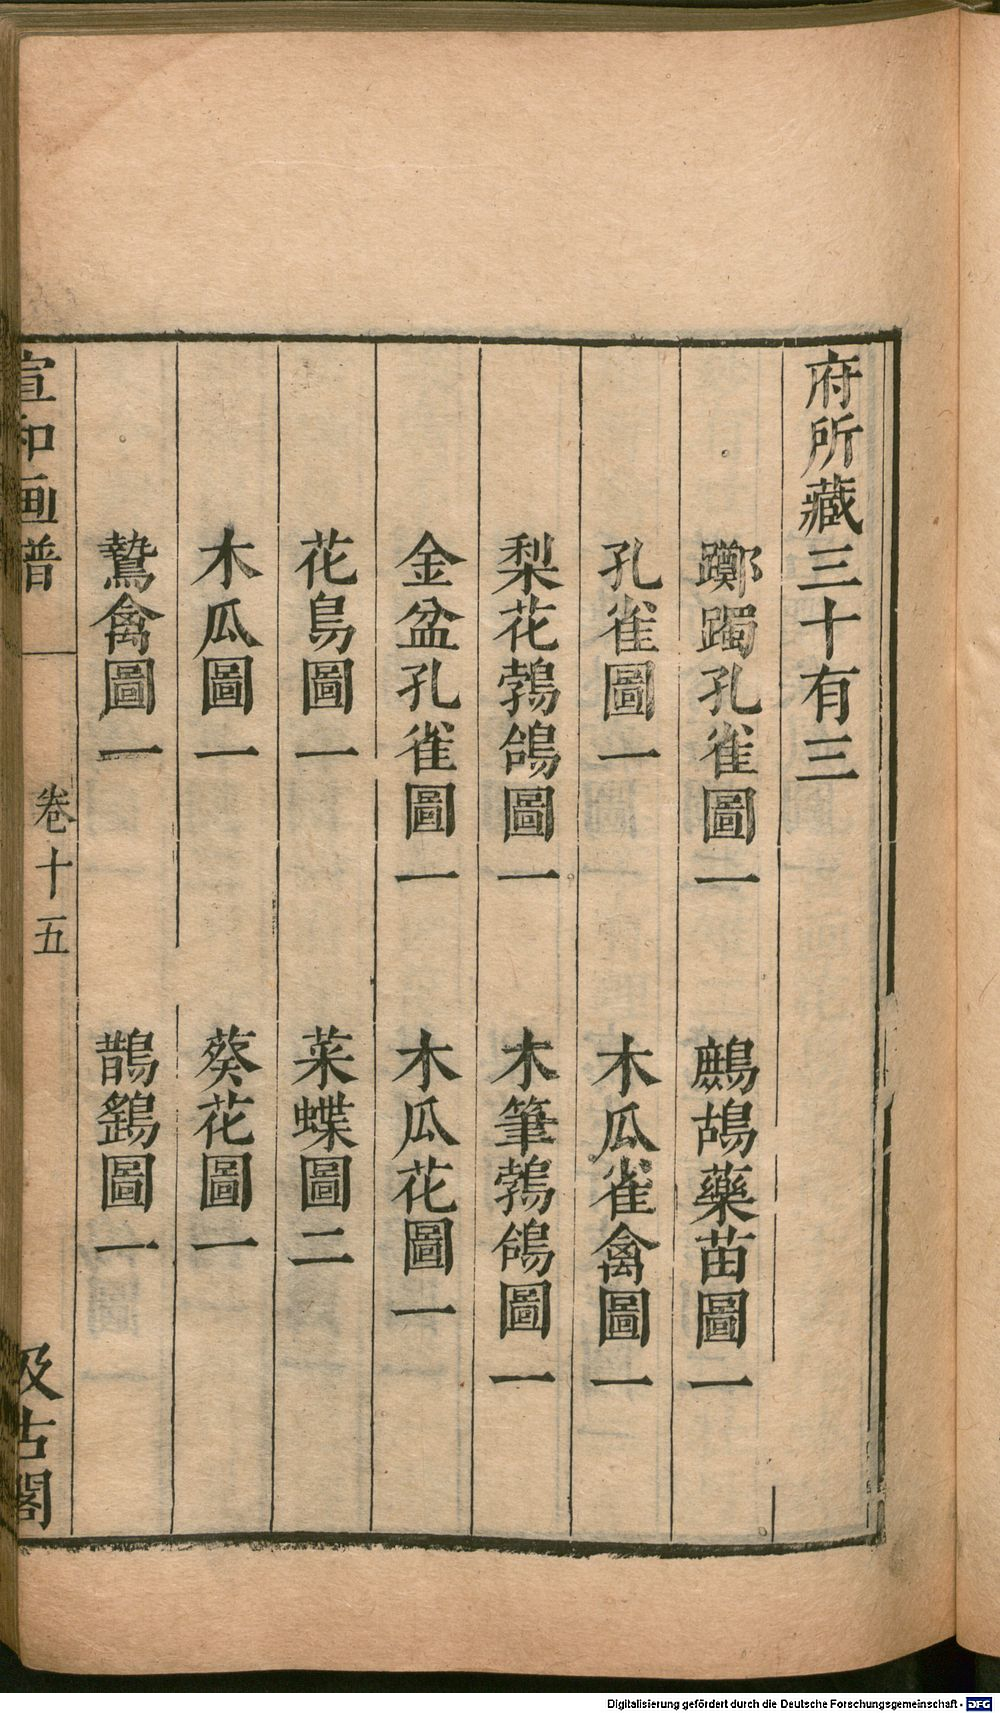 府所藏三十有三
躑躅孔雀圖一　鷓鴣藥苗圖一
孔雀圖一　木瓜雀禽圖一
梨花鵓鴿圖一　木筆鵓鴿圖一
金盆孔雀圖一　木瓜花圖一
花鳥圖一　菜蝶圖二
木瓜圖一　葵花圖一
鷙禽圖一　鵲鷂圖一
宣和画譜　卷十五　汲古閣
Digitalisierung gefördert durch die Deutsche Forschungsgemeinschaft - DFG